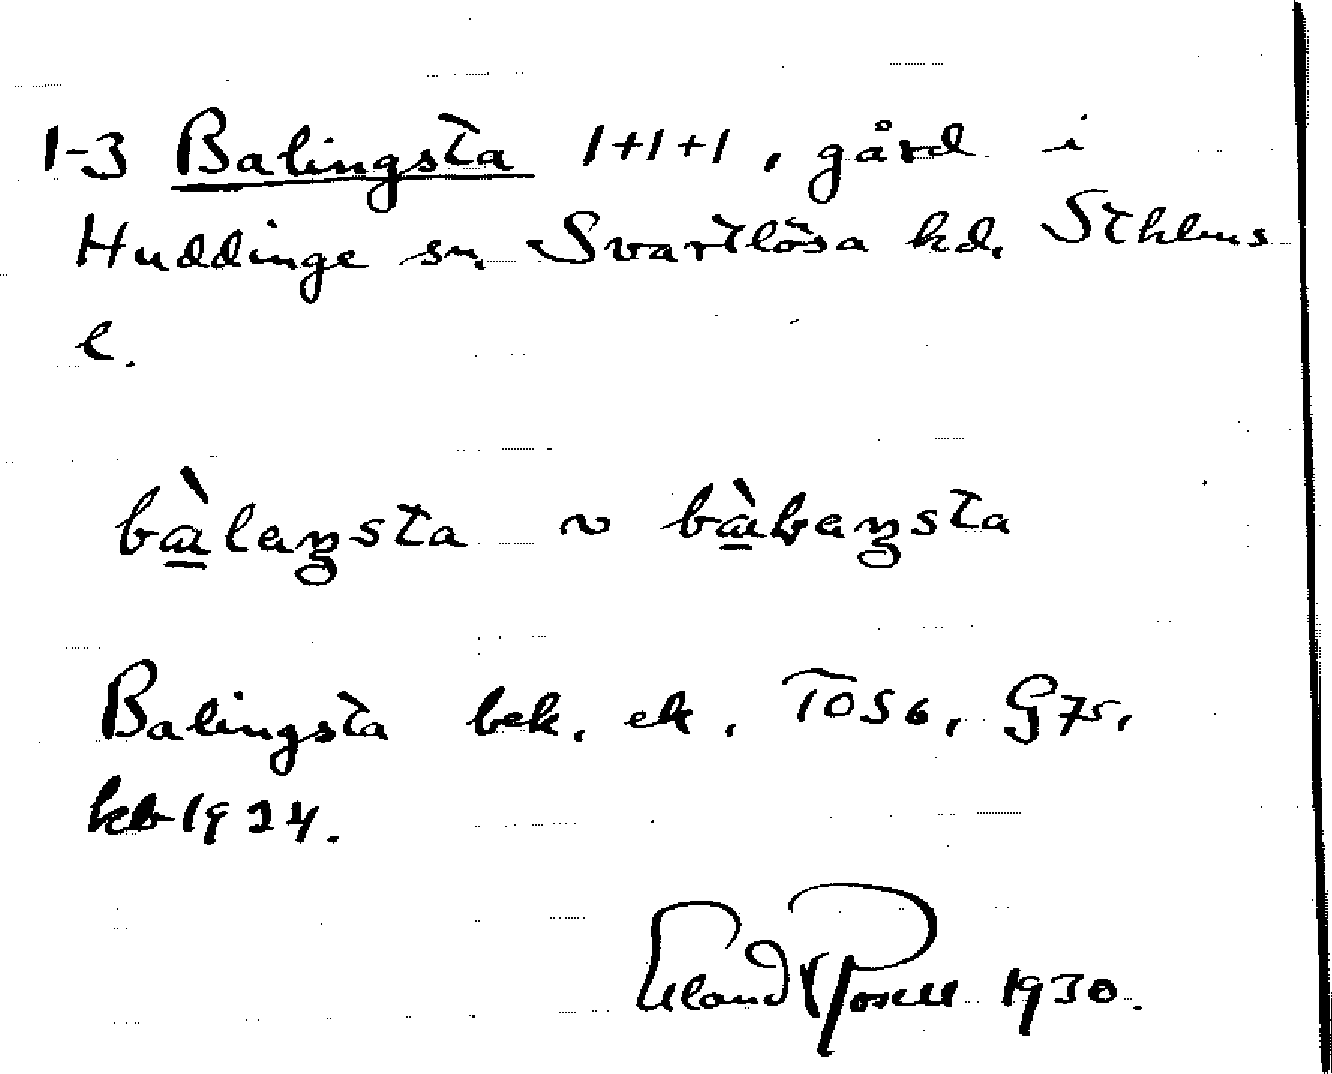 1-3 Balingsta 1+1+1, gård i
Huddinge sn, Svartlösa hd, Sthlms
l.
bàlaŋsta ~ bàɫaŋsta
Balingsta bek. ek. T056, G75,
kb 1924.
Erland Rosell 1930.